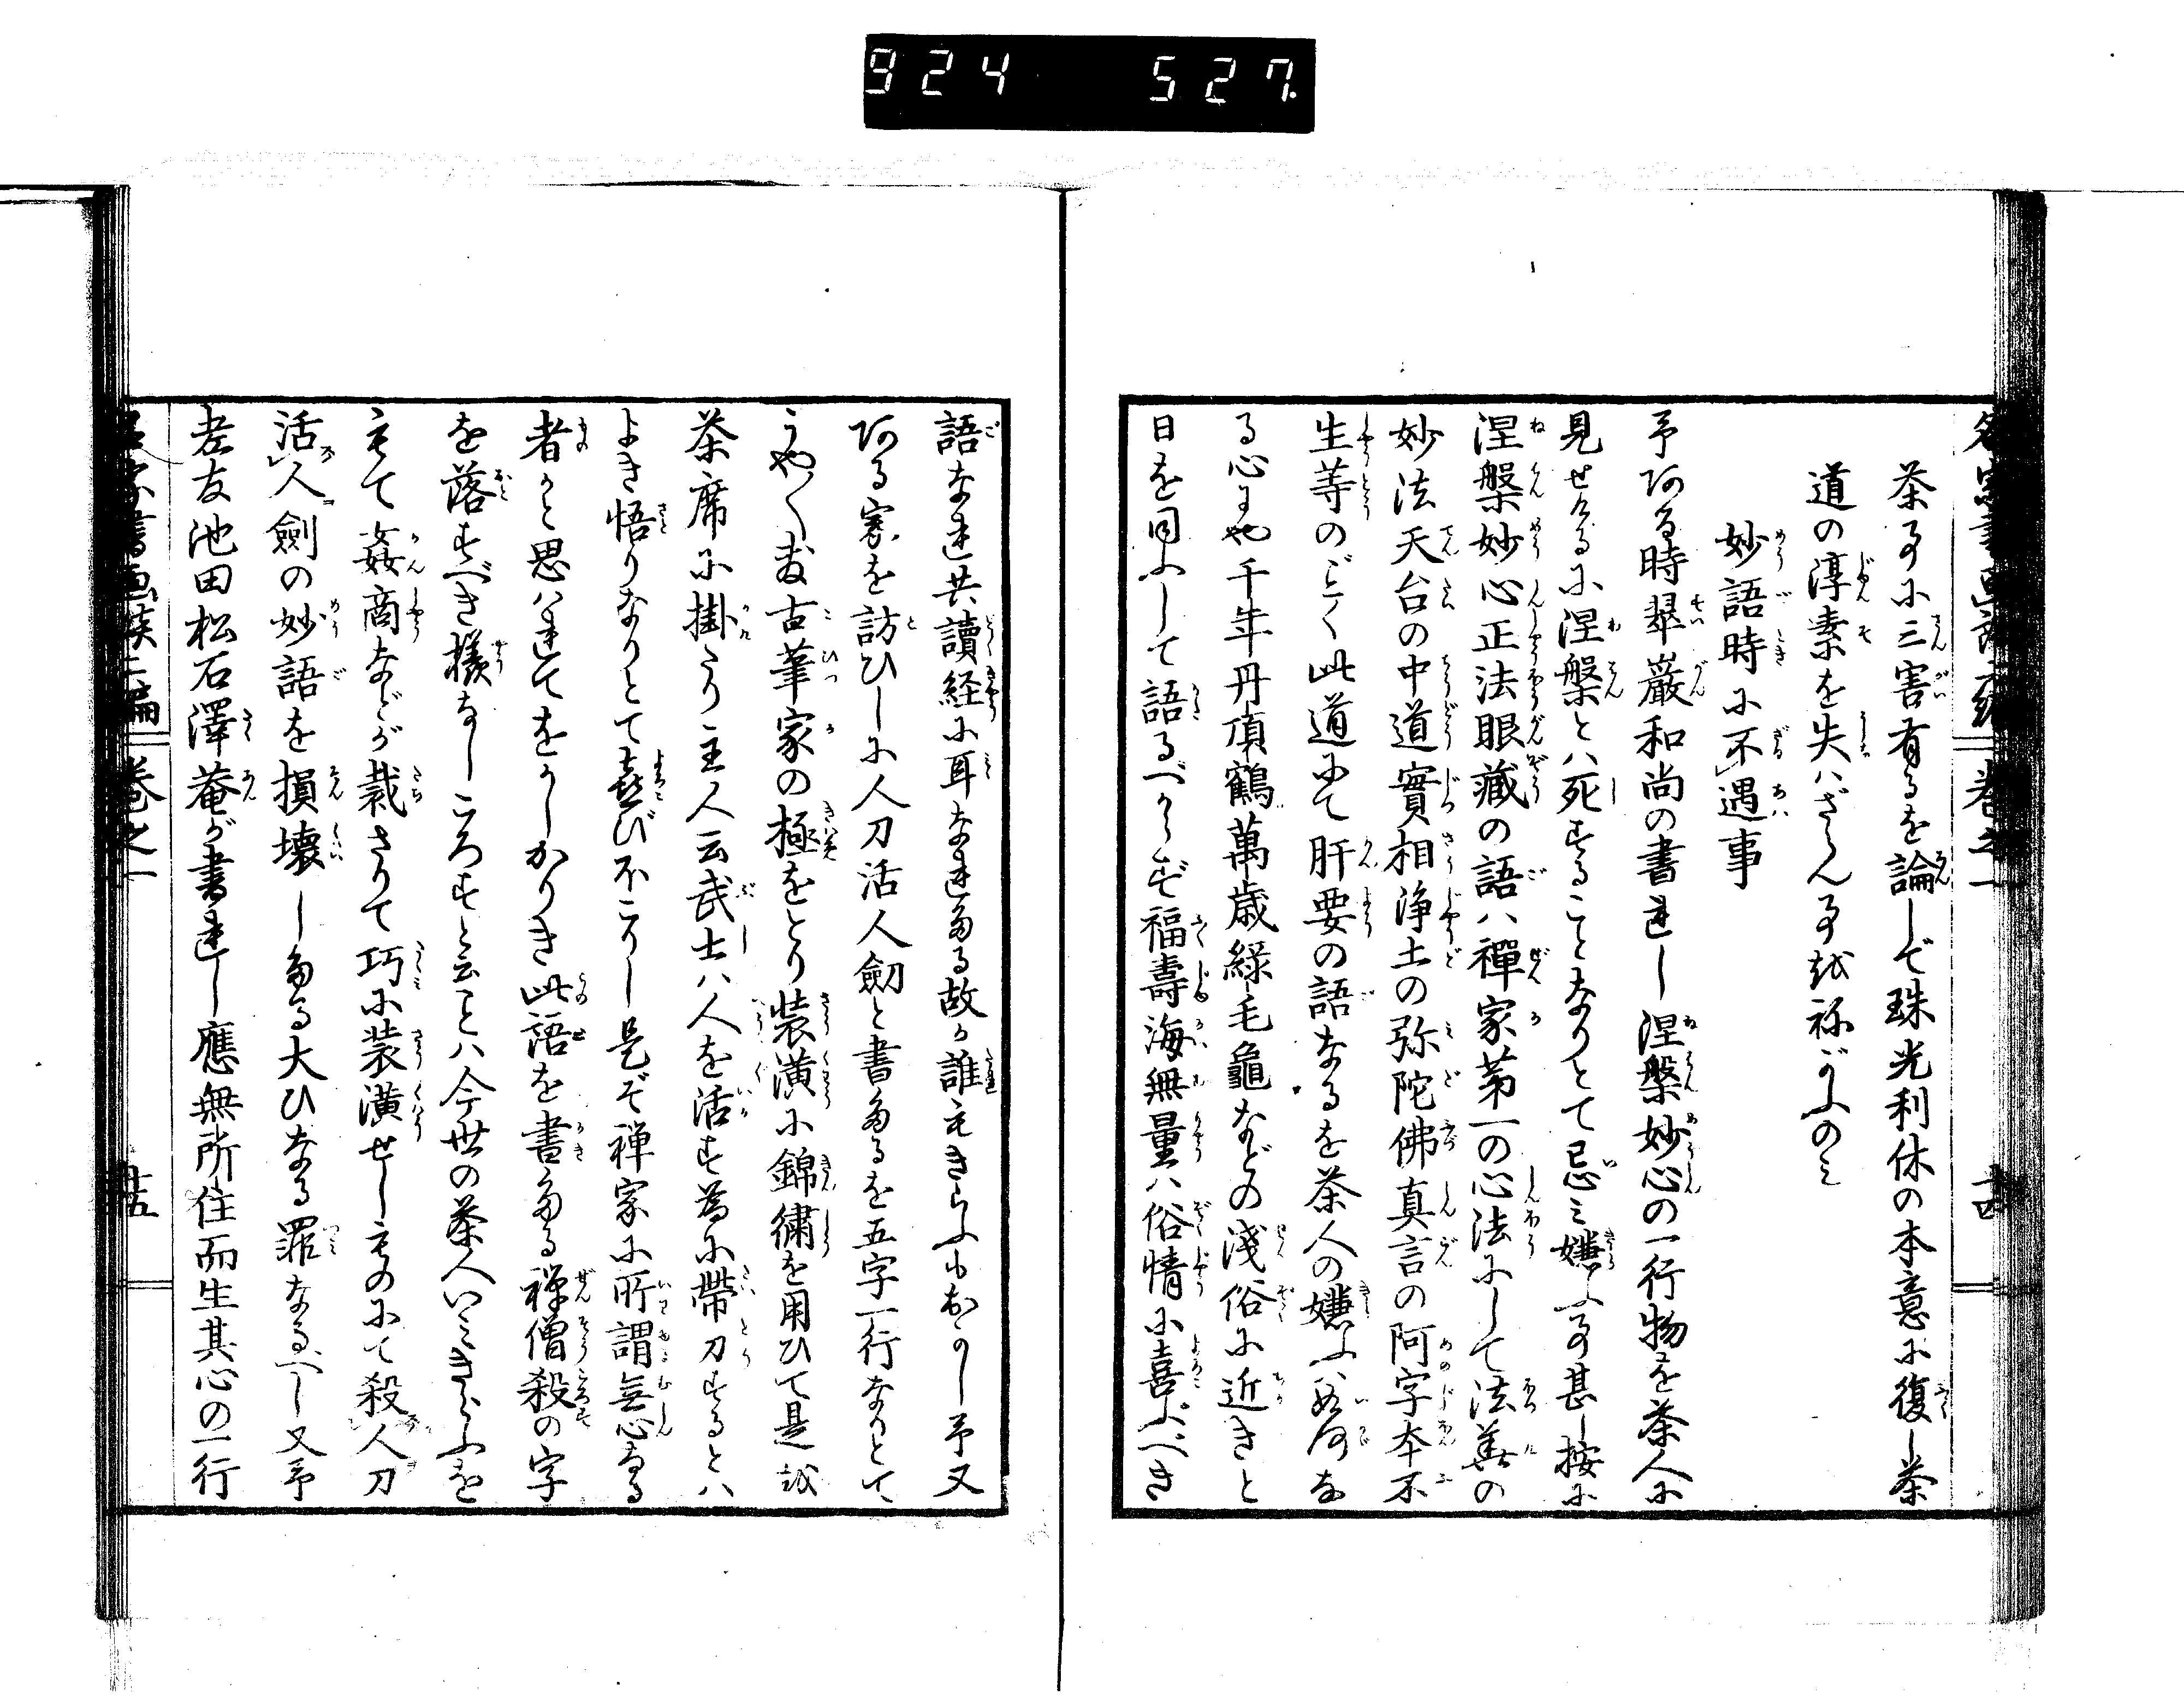 924 527.
茶事に三害有るを論じて珠光利休の本意に復し茶
道の淳素を失はざらん事を祢がふのミ
妙語時に不遇事
予ある時翠巌和尚の書れし涅槃妙心の一行物を茶人に
見せけるに涅槃とハ死することなりとて忌ミ嫌ふ事甚し按に
涅槃妙心正法眼藏の語ハ禪家第一の心法にして法華の
妙法天台の中道實相浄土の弥陀佛真言の阿字本不
生等のごとく此道にて肝要の語なるを茶人の嫌ふハ如何な
る心にや千年丹頂鶴萬歳緑毛龜などの淺俗に近きと
日を同ふして語るべからず福壽海無量ハ俗情に喜ぶべき
語なれ共讀経に耳なれたる故か誰もきらふもおかし予又
ある家を訪ひしに人刀活人劔と書たるを五字一行なりとて
うや〱敷古筆家の極をとり装潢に錦繍を用ひて是を
茶席に掛たり主人云武士ハ人を活す為に帶刀するとハ
よき悟りなりとて喜び不こりし是ぞ禅家に所謂無心なる
者かと思ハれてをかしかりき此語を書たる禅僧殺の字
を落すべき様なしころすと云ことハ今世の茶人いミきらふを
もて姦商などが裁さりて巧に装潢せしものにて殺人刀
活人劍の妙語を損壊したる大ひなる罪なるべし又予
老友池田松石澤菴が書れし應無所住而生其心の一行
卷之一